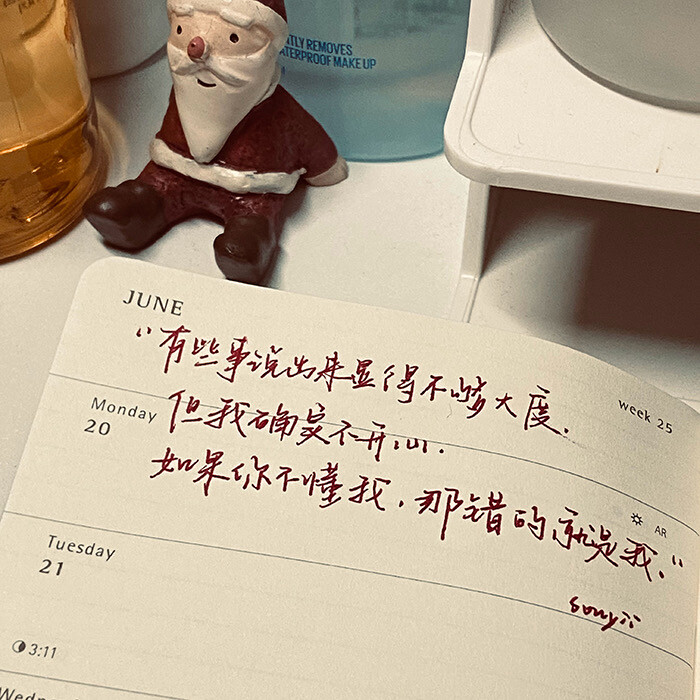 NTLY REMOVES
WATERPROOF MAKE UP
JUNE
week 25
"有些事说出来显得不够大度.
Monday
20
但我确实不开心.
如果你不懂我,那错的就是我."
AR
Tuesday
21
3:11